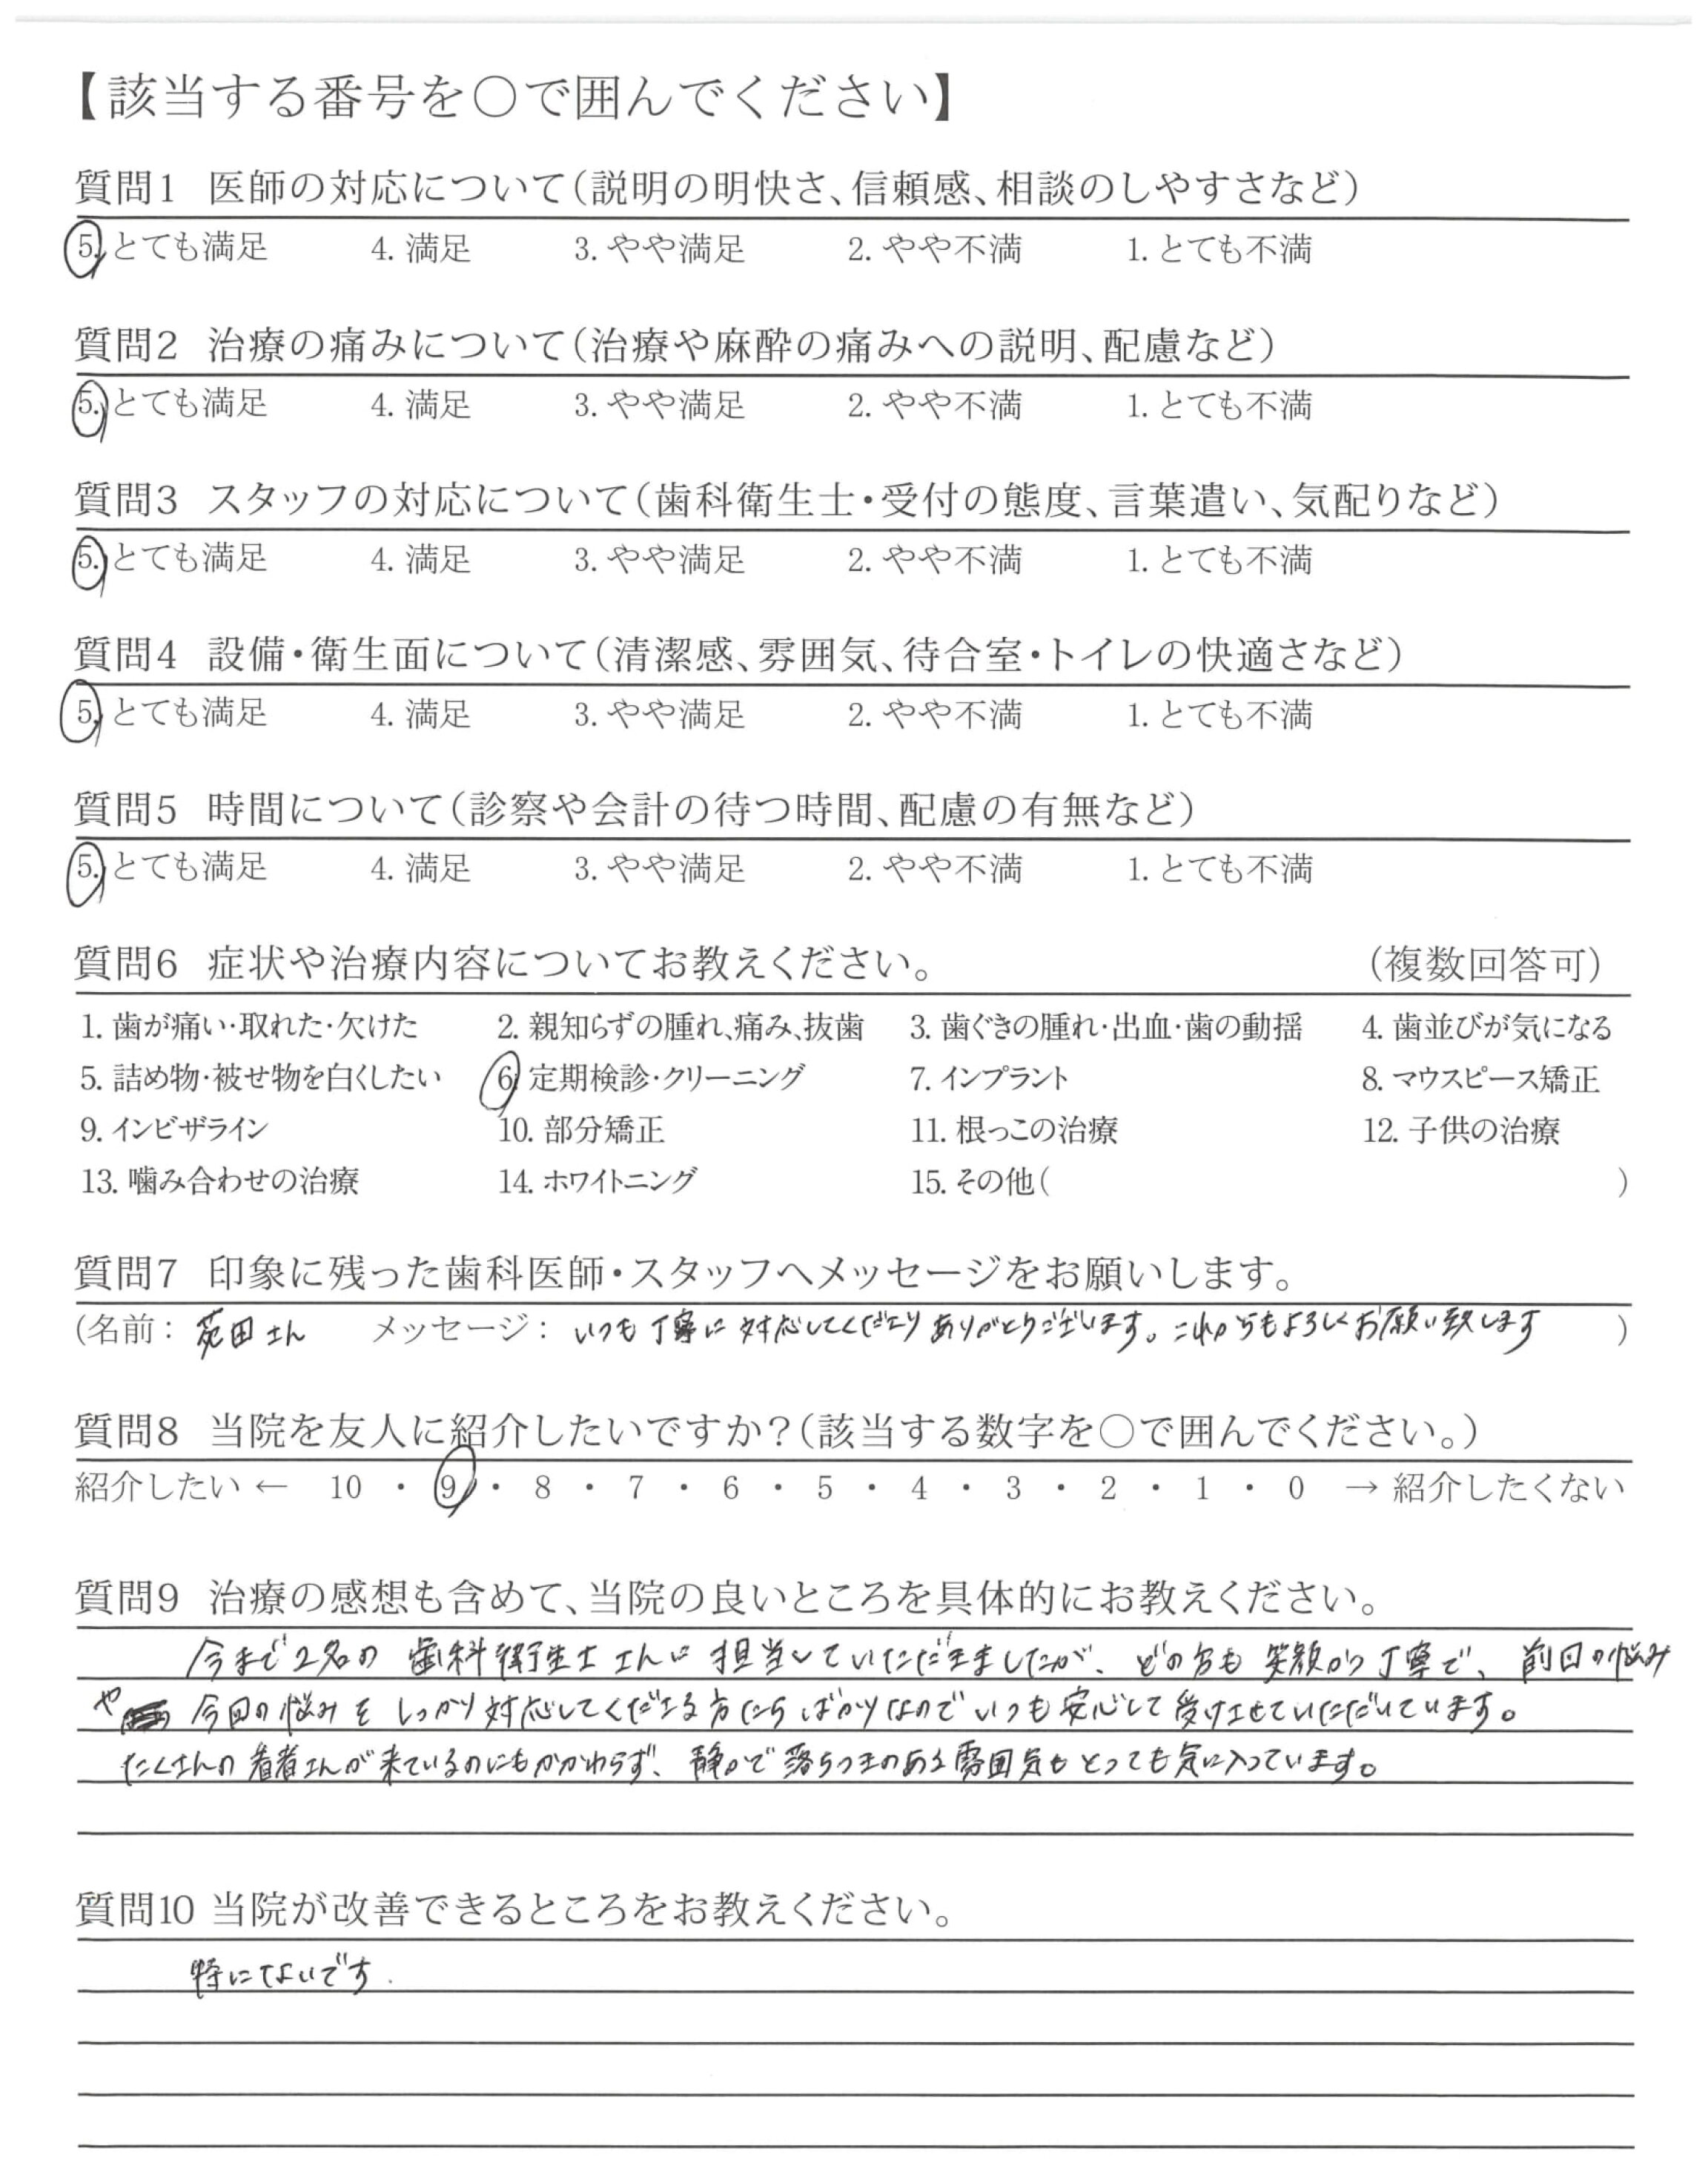 【該当する番号を〇で囲んでください】
質問1 医師の対応について(説明の明快さ、信頼感、相談のしやすさなど)
5. とても満足 4. 満足 3. やや満足 2. やや不満 1. とても不満
質問2 治療の痛みについて(治療や麻酔の痛みへの説明、配慮など)
5. とても満足 4. 満足 3. やや満足 2. やや不満 1. とても不満
質問3 スタッフの対応について(歯科衛生士・受付の態度、言葉遣い、気配りなど)
5. とても満足 4. 満足 3. やや満足 2. やや不満 1. とても不満
質問4 設備・衛生面について(清潔感、雰囲気、待合室・トイレの快適さなど)
5. とても満足 4. 満足 3. やや満足 2. やや不満 1. とても不満
質問5 時間について(診察や会計の待つ時間、配慮の有無など)
5. とても満足 4. 満足 3. やや満足 2. やや不満 1. とても不満
質問6 症状や治療内容についてお教えください。 (複数回答可)
1. 歯が痛い・取れた・欠けた 2. 親知らずの腫れ、痛み、抜歯 3. 歯ぐきの腫れ・出血・歯の動揺 4. 歯並びが気になる
5. 詰め物・被せ物を白くしたい 6. 定期検診・クリーニング 7. インプラント 8. マウスピース矯正
9. インビザライン 10. 部分矯正 11. 根っこの治療 12. 子供の治療
13. 噛み合わせの治療 14. ホワイトニング 15. その他( )
質問7 印象に残った歯科医師・スタッフへメッセージをお願いします。
(名前: 苑田さん メッセージ: いつも丁寧に対応してくださりありがとうございます。これからもよろしくお願い致します )
質問8 当院を友人に紹介したいですか?(該当する数字を〇で囲んでください。)
紹介したい ← 10 ・ 9 ・ 8 ・ 7 ・ 6 ・ 5 ・ 4 ・ 3 ・ 2 ・ 1 ・ 0 → 紹介したくない
質問9 治療の感想も含めて、当院の良いところを具体的にお教えください。
今まで2名の歯科衛生士さんに担当していただきましたが、どの方も笑顔かつ丁寧で、前回の悩み
や今回の悩みをしっかり対応してくださる方たちばかりなのでいつも安心して受けさせていただいています。
たくさんの患者さんが来ているのにもかかわらず、静かで落ちつきのある雰囲気もとっても気に入っています。
質問10 当院が改善できるところをお教えください。
特にないです.